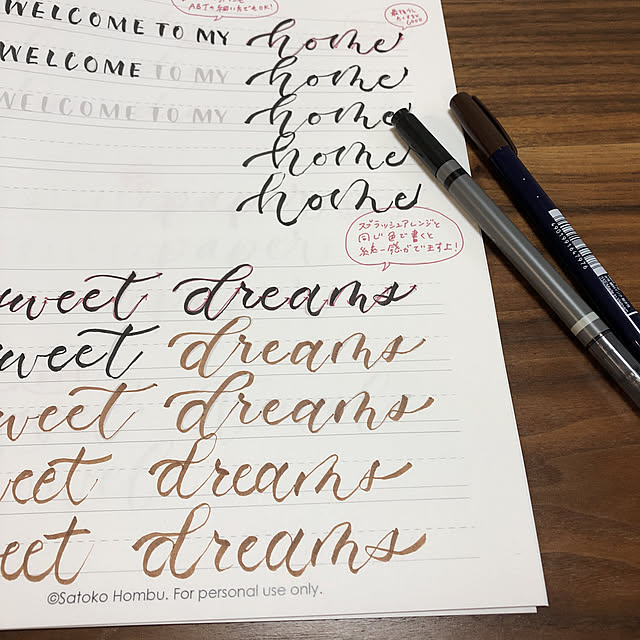 ABTの細い方でもOK!
WELCOME TO MY home
WELCOME TO MY home
WELCOME TO MY home
home
home
スプラッシュアレンジと
同じ色で書くと
統一感がでますよ!
sweet dreams
sweet dreams
sweet dreams
sweet dreams
sweet dreams
©Satoko Hombu. For personal use only.